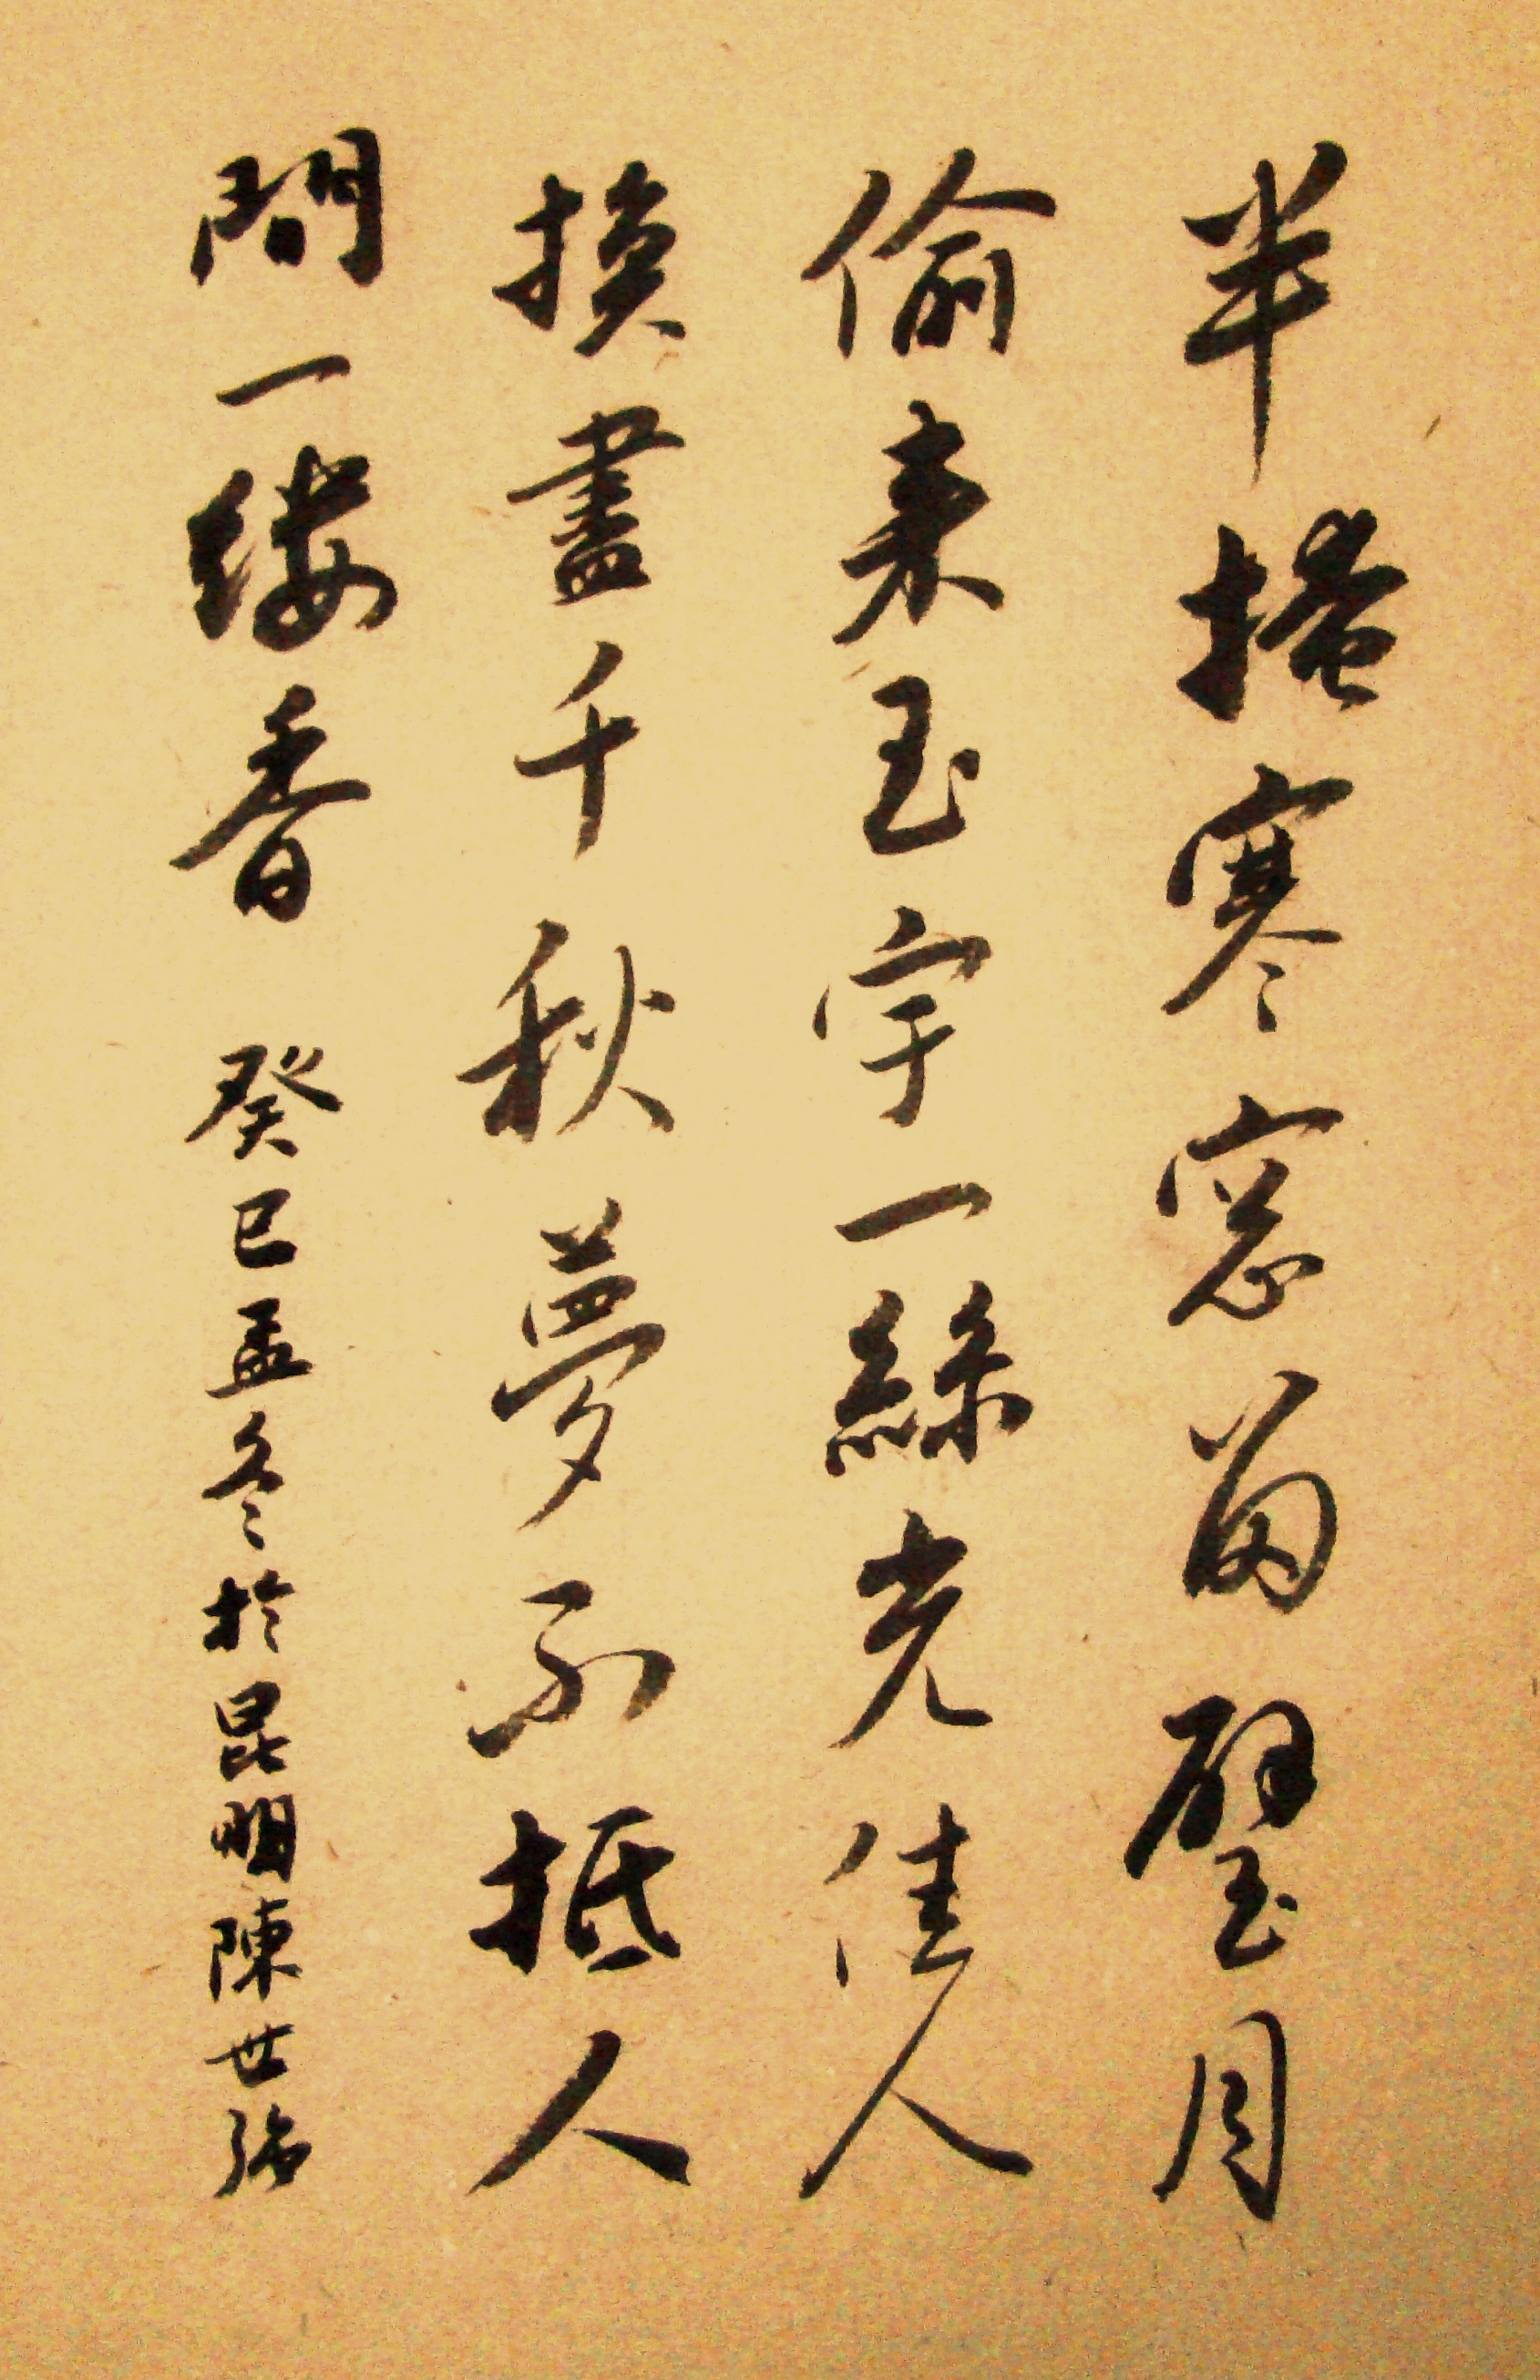 半掩寒窓留璧月
偷來玉宇一絲光佳人
換盡千秋夢不抵人
間一縷香 癸巳孟冬於昆明陳世強